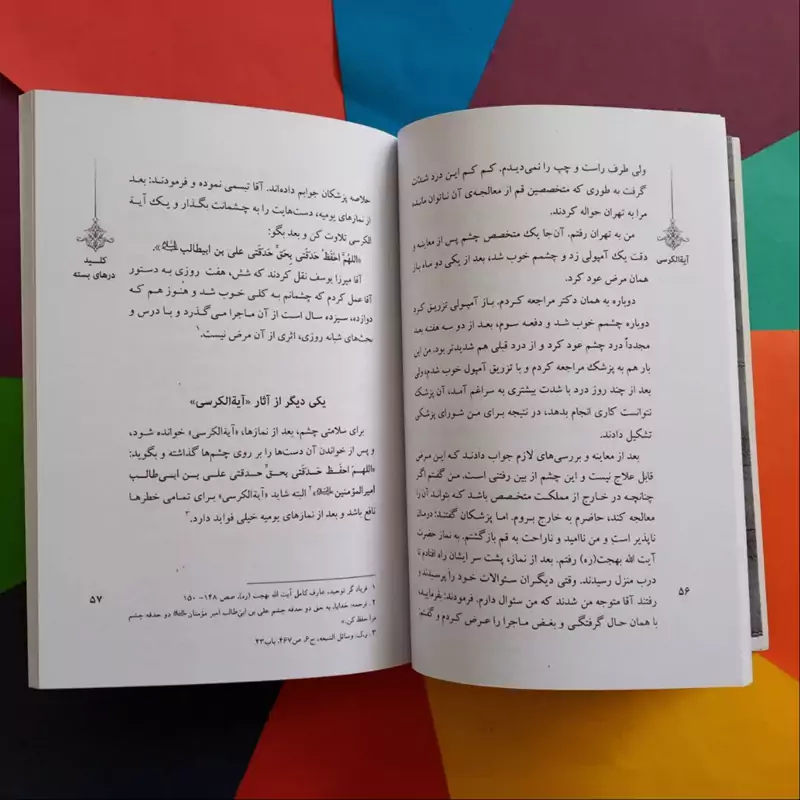 ولی طرف راست و چپ را نمی‌دیدم. کم کم این درد شدت
گرفت به طوری که متخصصین قم از معالجه‌ی آن ناتوان مانده
مرا به تهران حواله کردند.
من به تهران رفتم. آن‌جا یک متخصص چشم پس از معاینه و
دقت یک آمپولی زد و چشمم خوب شد، بعد از یکی دو ماه باز
همان مرض عود کرد.
دوباره به همان دکتر مراجعه کردم. باز آمپولی تزریق کرد
دوباره چشمم خوب شد و دفعه سوم، بعد از دو سه هفته بعد
مجدداً درد چشم عود کرد و از درد قبلی هم شدیدتر بود. من این
بار هم به پزشک مراجعه کردم و با تزریق آمپول خوب شدم، ولی
بعد از چند روز درد با شدت بیشتری به سراغم آمد، آن پزشک
نتوانست کاری انجام بدهد، در نتیجه برای من شورای پزشکی
تشکیل دادند.
بعد از معاینه و بررسی‌های لازم جواب دادند که این مرض
قابل علاج نیست و این چشم از بین رفتنی است. من گفتم اگر
چنانچه در خارج از مملکت متخصصی باشد که بتواند آن را
معالجه کند، حاضرم به خارج بروم. اما پزشکان گفتند: درمان
ناپذیر است و من ناامید و ناراحت به قم بازگشتم. به نماز حضرت
آیت الله بهجت(ره) رفتم. بعد از نماز، پشت سر ایشان راه افتادم تا
درب منزل رسیدند. وقتی دیگران سئوالات خود را پرسیدند و
رفتند آقا متوجه من شدند که من سئوال دارم. فرمودند: بفرمایید،
با همان حال گرفتگی و بغض ماجرا را عرض کردم و گفتم:
آیةالکرسی
۵۶
خلاصه پزشکان جوابم داده‌اند. آقا تبسمی نموده و فرمودند: بعد
از نمازهای یومیه، دست‌هایت را به چشمانت بگذار و یک آیة
الکرسی تلاوت کن و بعد بگو:
«اللهُمَّ احفَظ حَدَقَتی بِحَقِّ حَدَقَتی علی بن ابیطالب علیه السلام».
آقا میرزا یوسف نقل کردند که شش، هفت روزی به دستور
آقا عمل کردم که چشمانم به کلی خوب شد و هنوز هم که
دوازده، سیزده سال است از آن ماجرا می‌گذرد و با درس و
بحث‌های شبانه روزی، اثری از آن مرض نیست.۱
یکی دیگر از آثار «آیةالکرسی»
برای سلامتی چشم، بعد از نمازها، «آیةالکرسی» خوانده شود،
و پس از خواندن آن دست‌ها را بر روی چشم‌ها گذاشته و بگوید:
«اللهمّ احفَظ حَدَقَتی بِحقِّ حدقتی علی بن ابی‌طالب
امیرالمؤمنین علیه السلام»۲ البته شاید «آیةالکرسی» برای تمامی خطرها
نافع باشد و بعد از نمازهای یومیه خیلی فواید دارد.۳
۱ فریادگر توحید، عارف کامل آیت الله بهجت (ره)، صص ۱۴۸- ۱۵۰
۲. ترجمه: خدایا، به حق دو حدقه چشم علی بن ابی‌طالب امیر مؤمنان علیه السلام دو حدقه چشم
مرا حفظ کن.»
۳. ر.ک: وسائل الشیعه، ج۶، ص۴۶۷، باب۲۳
کلید
درهای بسته
۵۷